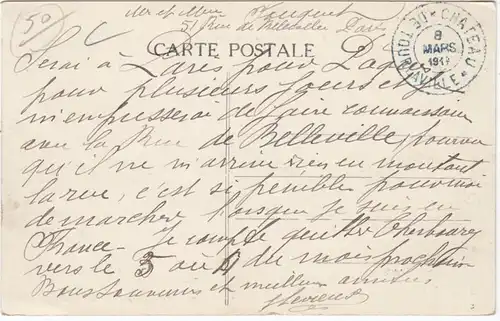 50
Mr et Mme Fouquet
51 Rue de Belleville Paris
CARTE POSTALE
CHATEAU DE TOURLAVILLE
8
MARS
191
Serai à Paris pour
pour plusieurs jours et je
m'empresserai de faire connaissance
avec la Rue de Belleville, pourvu
qu'il ne m'arrive rien en montant
la rue, c'est si pénible pour moi
de marcher lorsque je suis en
France - Je compte quitter Cherbourg
vers le 5 ou du mois prochain
Bons Souvenirs et meilleures amitiés